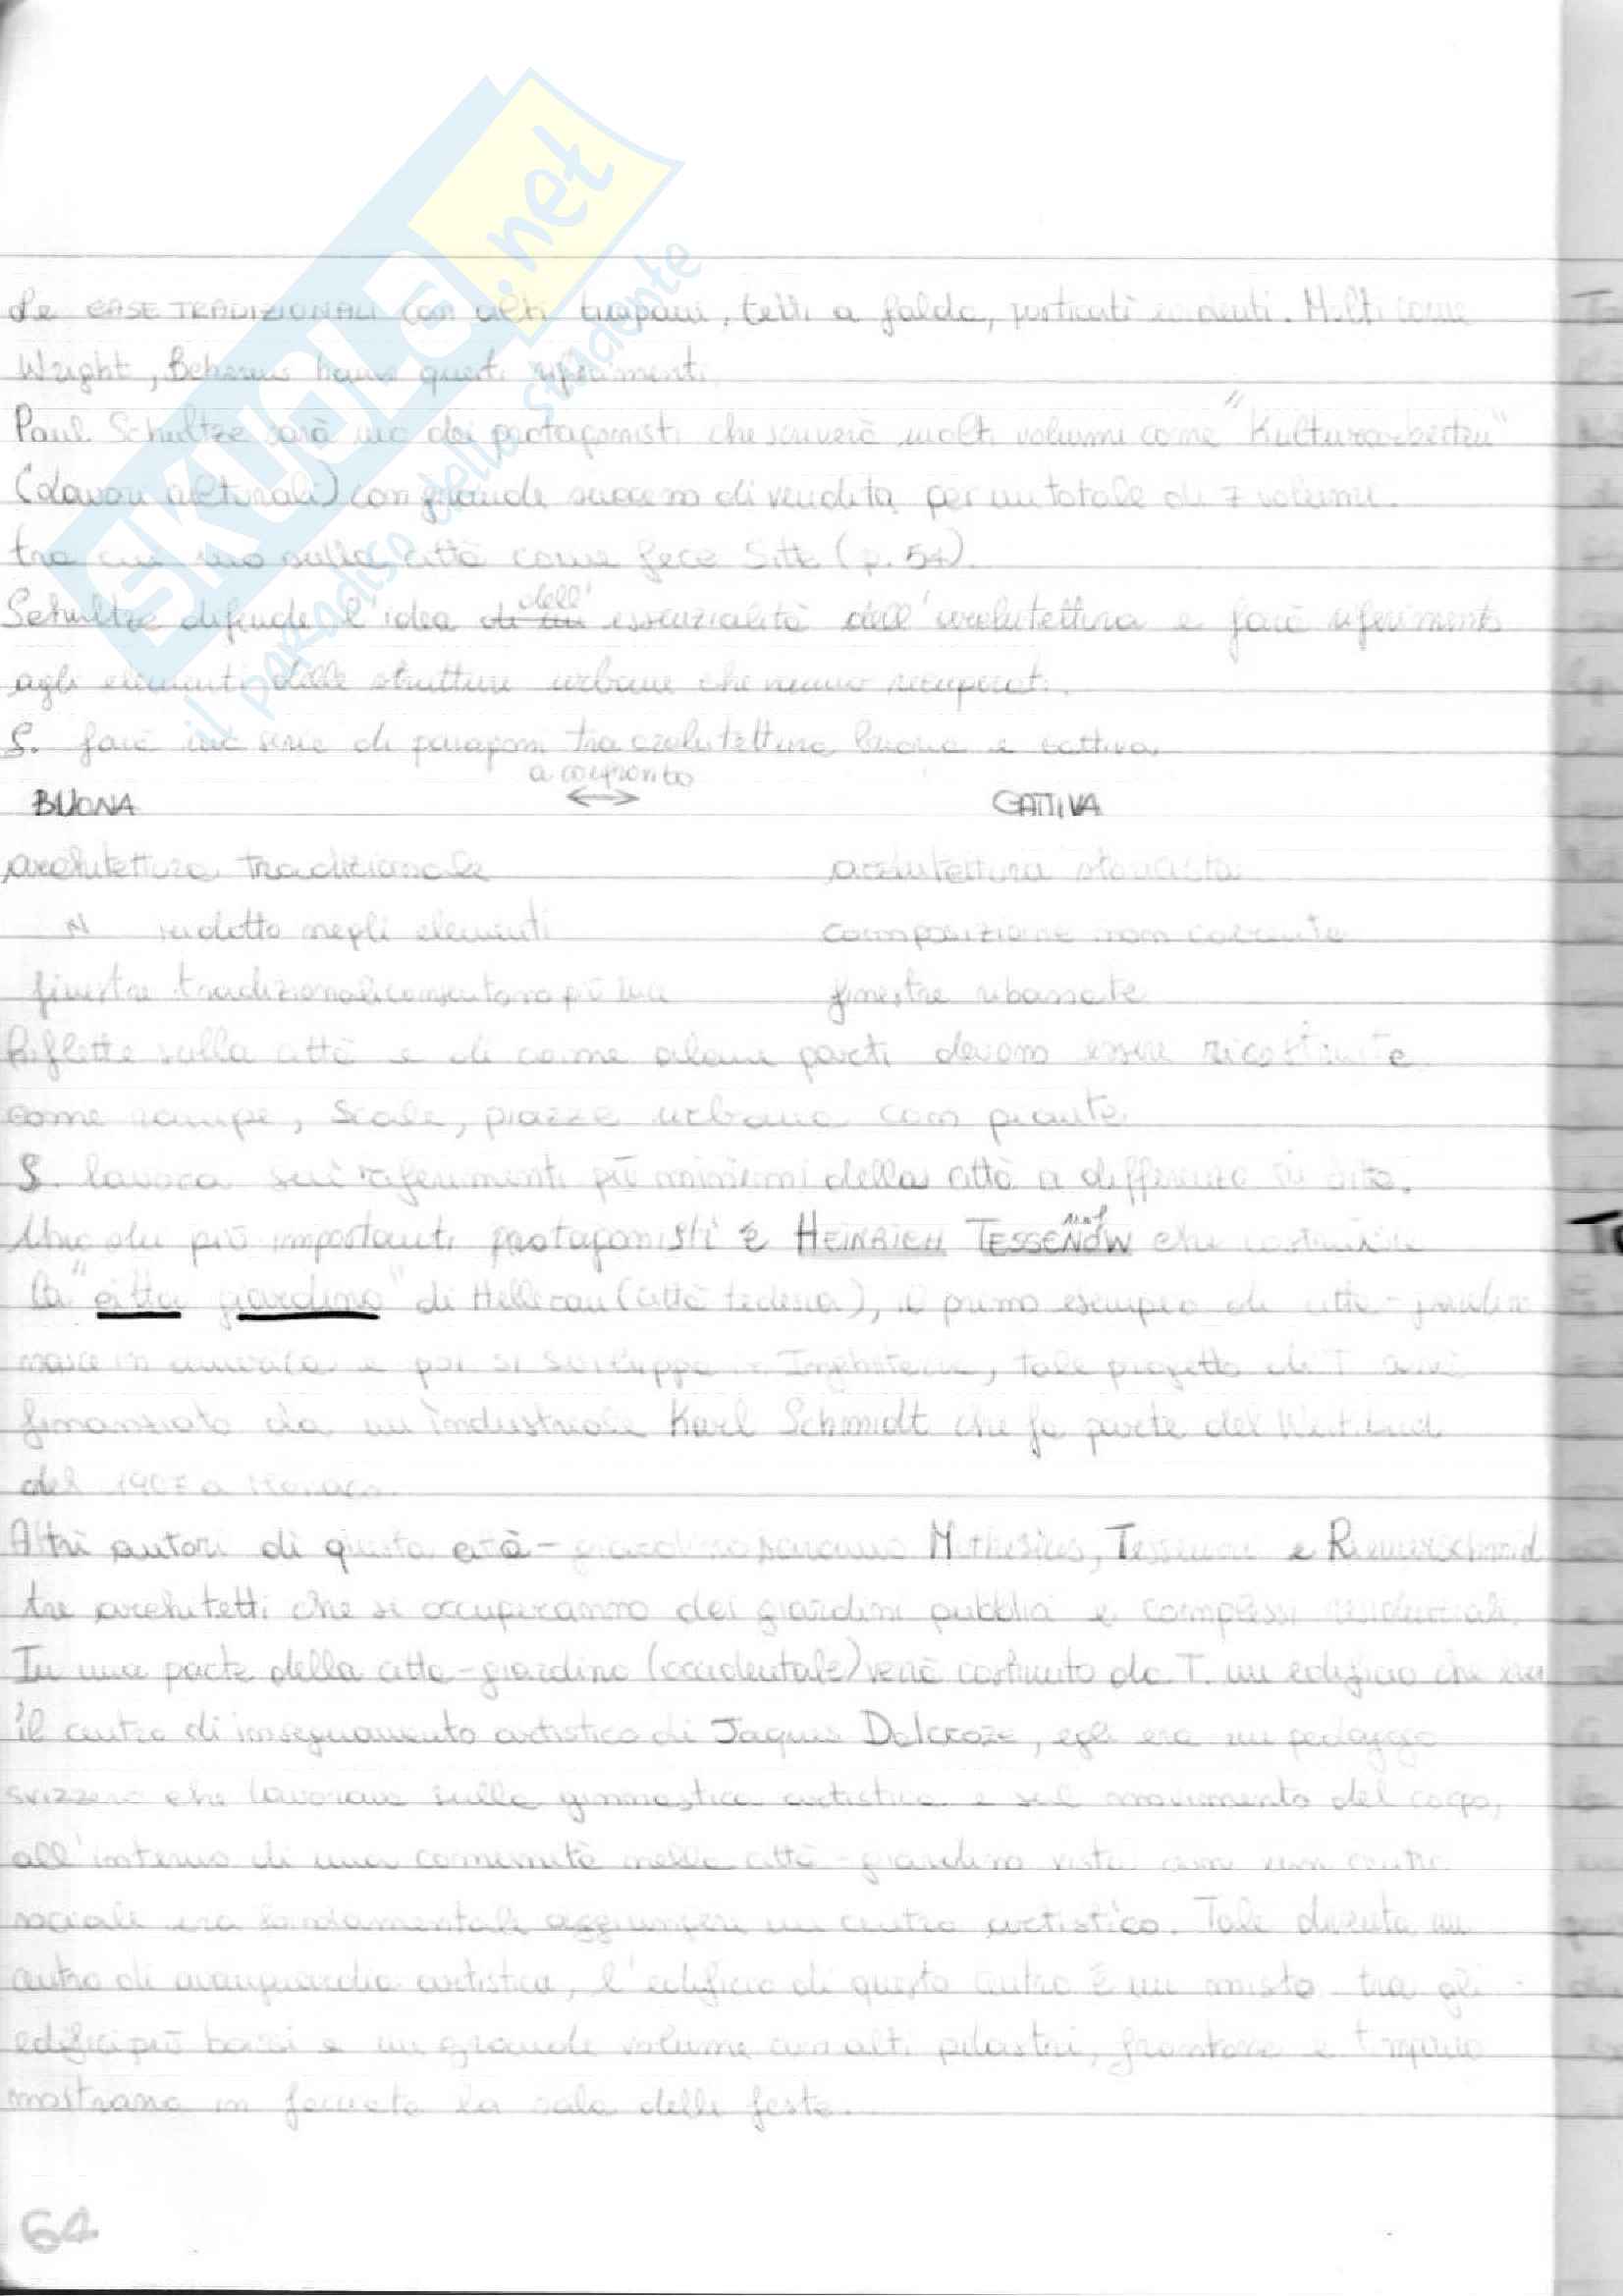 SKUOLA.net
il paradiso dello studente
Le CASE TRADIZIONALI con alti timpani, tetti a falda, porticati evidenti. Molti come
Wright, Behrens hanno questi riferimenti
Paul Schultze sarà uno dei protagonisti che scriverà molti volumi come "Kulturarbeiten"
(lavori culturali) con grande successo di vendita per un totale di 7 volumi.
tra cui uno sulla città come fece Sitte (p. 54).
Schultze difende l'idea dell' essenzialità dell'architettura e farà riferimento
agli elementi delle strutture urbane che vanno recuperati.
S. farà una serie di paragoni tra architettura buona e cattiva.
a confronto
BUONA ↔ CATTIVA
architettura tradizionale architettura storicista
" ridotto negli elementi composizione non corrente
finestre tradizionali consentono più luce finestre ribassate
Riflette sulla città e di come alcune parti devono essere ricostruite
come rampe, scale, piazze urbane con piante
S. lavora sui riferimenti più minimi della città a differenza di
Uno dei più importanti protagonisti è HEINRICH TESSENOW che
la "città giardino" di Hellerau (città tedesca), il primo esempio di città-giardino
nasce in e poi si sviluppa Inghilterra, tale progetto di T. sarà
finanziato da un industriale Karl Schmidt che fa parte del Werkbund
del 1907 a Monaco.
Altri autori di questa città-giardino saranno Muthesius, Tessenow e Riemerschmid
tre architetti che si occuperanno dei giardini pubblici e complessi residenziali.
In una parte della città-giardino (occidentale) verrà costruito da T. un edificio che era
il centro di insegnamento artistico di Jaques Dalcroze, egli era un pedagogo
svizzero che lavorava sulla ginnastica artistica e sul movimento del corpo,
all'interno di una comunità nella città-giardino vista con un centro
sociale era fondamentale aggiungere un centro artistico. Tale diventa un
centro di avanguardia artistica, l'edificio di questo centro è un misto tra gli
edifici più bassi e un grande volume con alti pilastri, frontone e timpano
mostrano in facciata la sala delle feste.
64